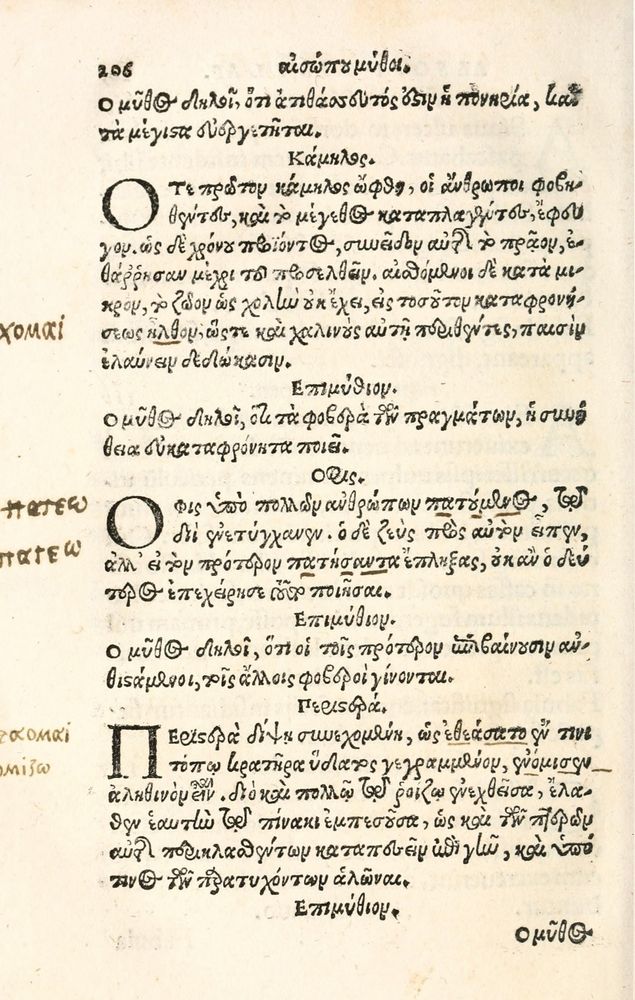 206 αἰσώπου μῦθοι.
Ο μῦθος δηλοῖ, ὅτι ἀτιθάσσευτός ἐστιν ἡ πονηρία, κἂν
τὰ μέγιστα εὐεργετῆται.
Κάμηλος.
ΟΤΕ πρῶτον κάμηλος ὤφθη, οἱ ἄνθρωποι φοβη-
θέντες, καὶ τὸ μέγεθος καταπλαγέντες, ἔφευ
γον. ὡς δὲ χρόνου προϊόντος, συνεῖδον αὐτῆς τὸ πρᾶον, ἐ-
θάῤῥησαν μέχρι τοῦ προσελθεῖν. αἰσθόμενοι δὲ κατὰ μι-
κρὸν, τὸ ζῶον ὡς χολὴν οὐκ ἔχει, εἰς τοσοῦτον καταφρονή-
χομαί
σεως ἦλθον, ὥστε καὶ χαλινοὺς αὐτῇ περιθέντες, παισὶν
ἐλαύνειν δεδώκασιν.
Επιμύθιον.
Ο μῦθος δηλοῖ, ὅτι τὰ φοβερὰ τῶν πραγμάτων, ἡ συνή
θεια εὐκαταφρόνητα ποιεῖ.
Οφις.
πατέω
ΟΦΙΣ ὑπὸ πολλῶν ἀνθρώπων πατούμενος, τῷ
διῒ ἐνετύγχανεν. ὁ δὲ ζεὺς πρὸς αὐτὸν εἶπεν,
πατέω
ἀλλ' εἰ τὸν πρότερον πατήσαντα ἔπληξας, οὐκ ἂν ὁ δεύ
τερος ἐπεχείρησε τοῦτο ποιῆσαι.
Επιμύθιον.
Ο μῦθος δηλοῖ, ὅτι οἱ τοῖς πρότερον ἐπιβαίνουσιν ἀν-
θιστάμενοι, τοῖς ἄλλοις φοβεροὶ γίνονται.
Περιστερά.
ΠΕΡΙΣΤΕΡΑ δίψῃ συνεχομένη, ὡς ἐθεάσατο ἔν τινι
τόπῳ κρατῆρα ὕδατος γεγραμμένον, ἐνόμισεν
ἀληθινὸν εἶναι. διὸ καὶ πολλῷ τῷ ῥοίζῳ ἐνεχθεῖσα, ἔλα-
θεν ἑαυτὴν τῷ πίνακι ἐμπεσοῦσα, ὡς καὶ τῶν πτερῶν
αὐτῆς περικλασθέντων καταπεσεῖν ἐπὶ γῆν, καὶ ὑπό
τινος τῶν παρατυχόντων ἁλῶναι.
Επιμύθιον.
Ο μῦθος